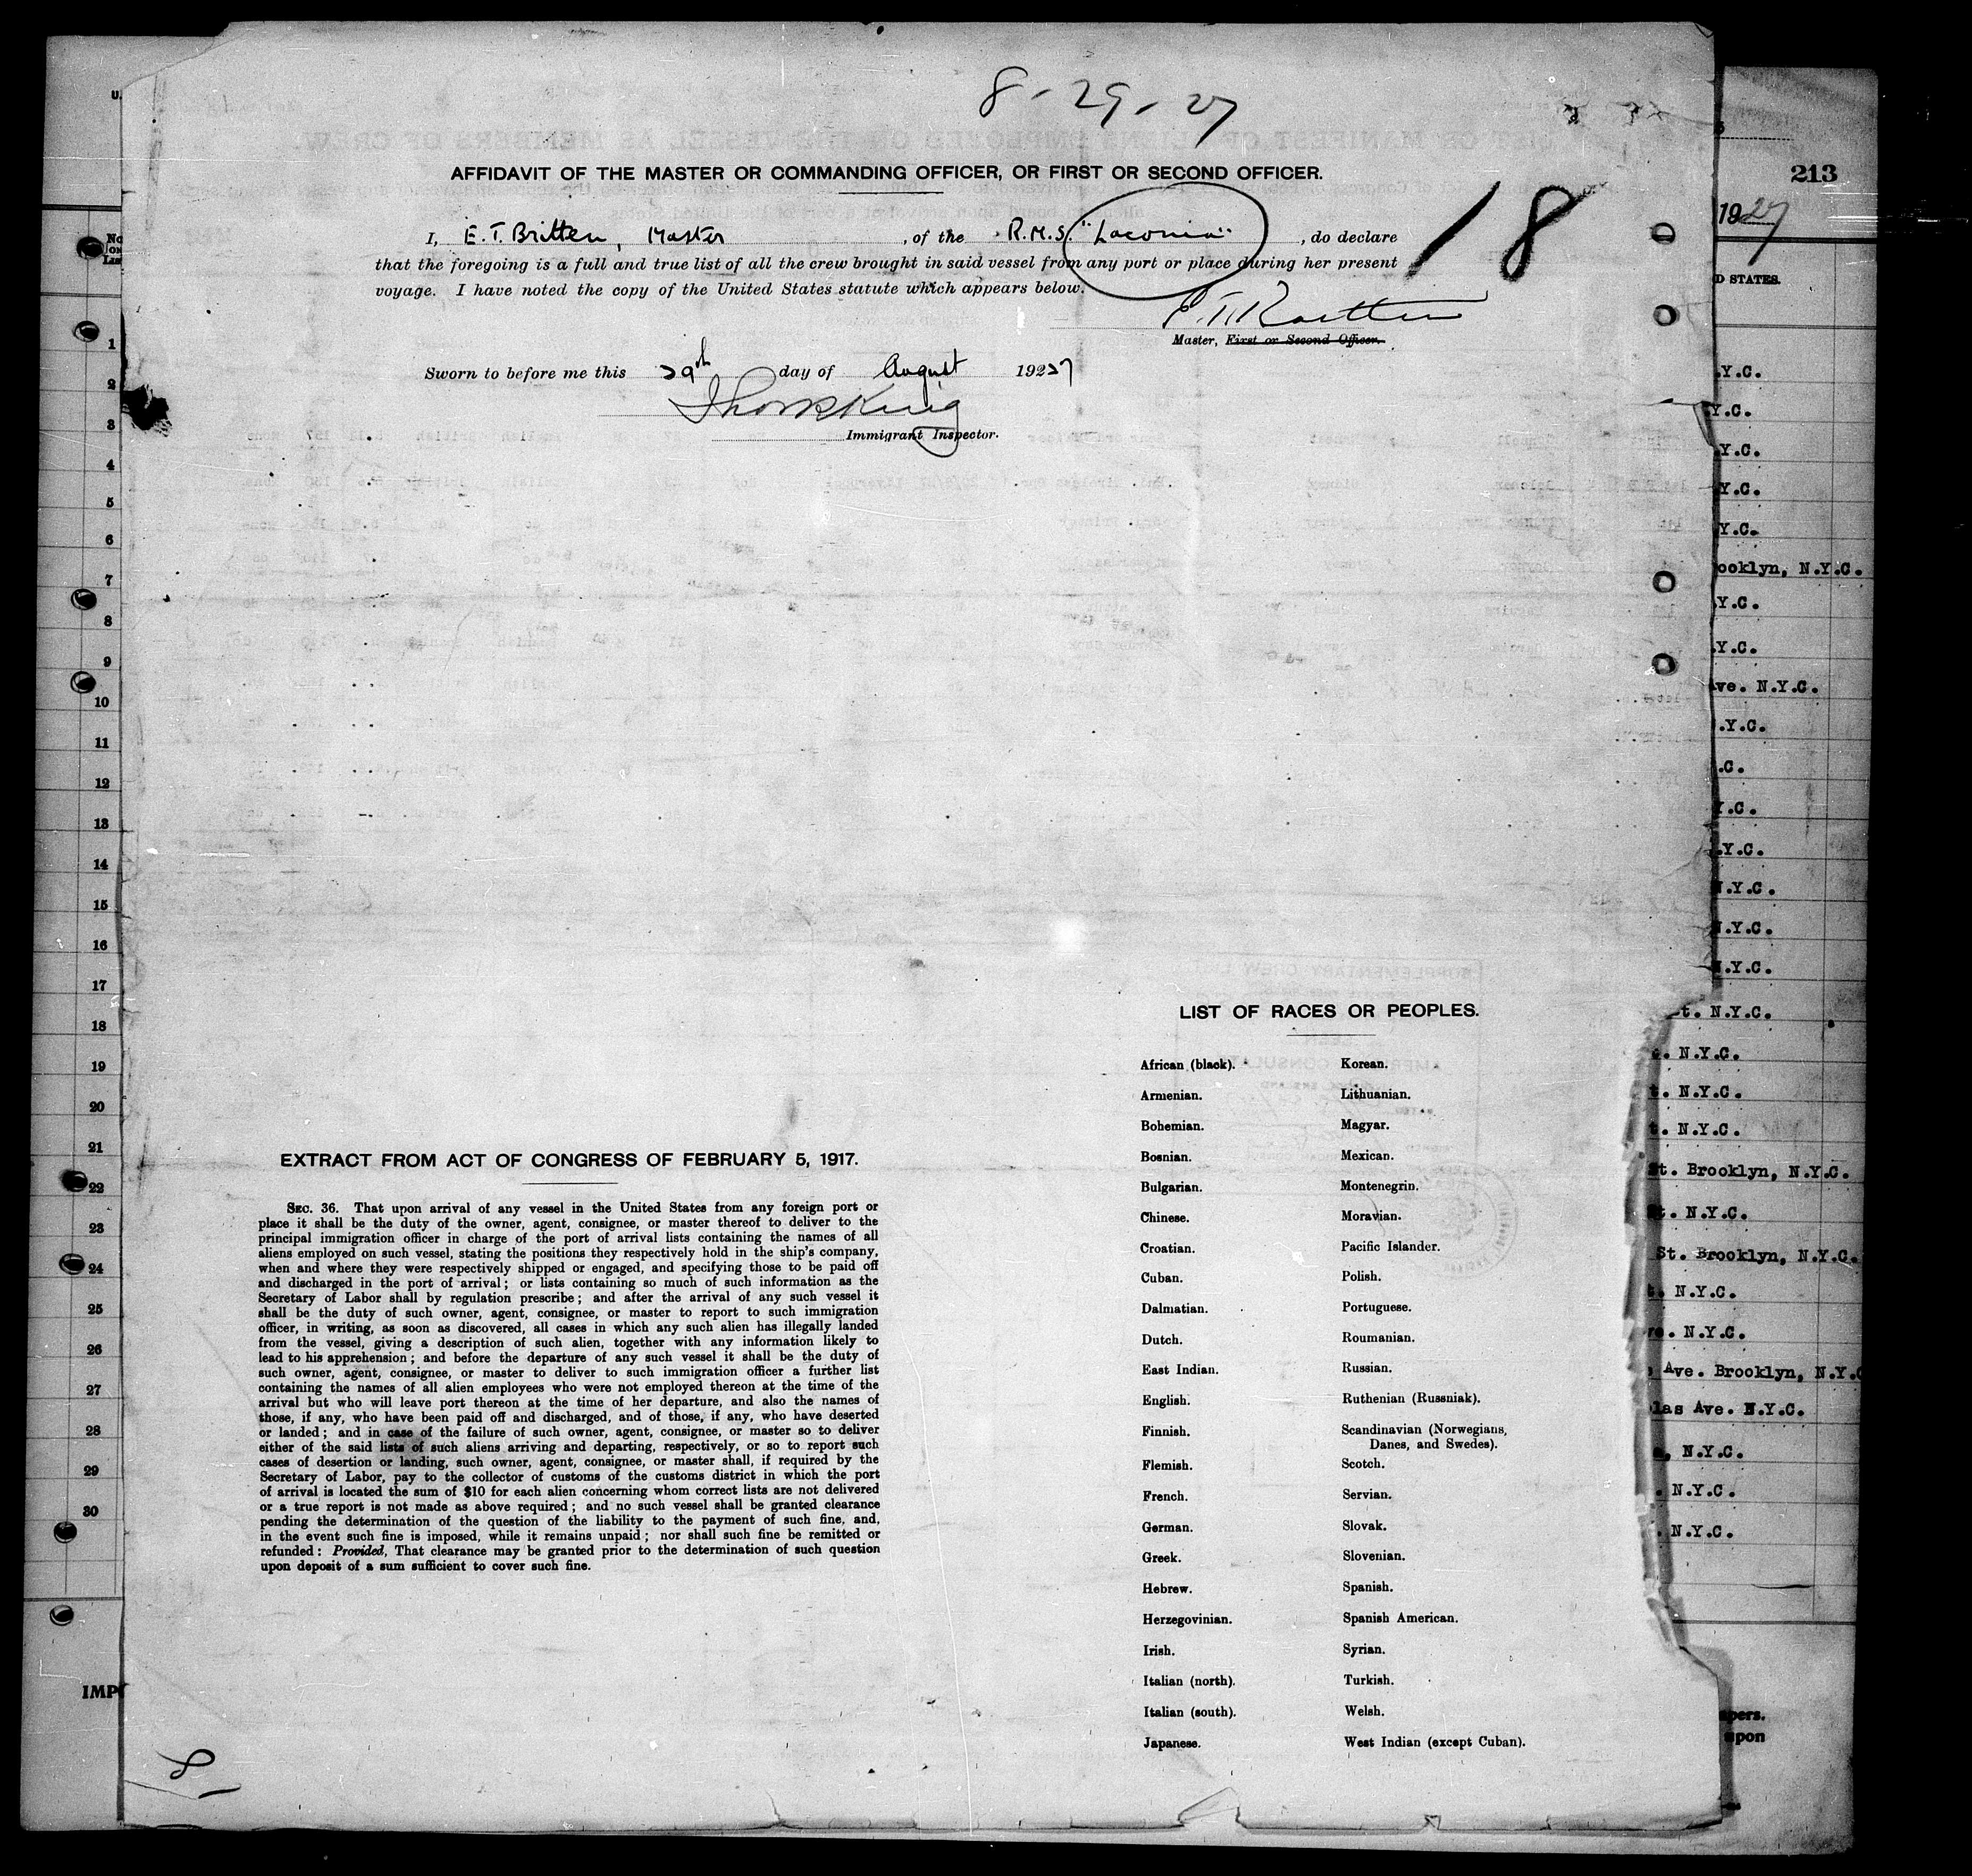 8-29-27
AFFIDAVIT OF THE MASTER OR COMMANDING OFFICER, OR FIRST OR SECOND OFFICER.
18
I, E.T. Britten, Master, of the R.M.S. "Laconia", do declare
that the foregoing is a full and true list of all the crew brought in said vessel from any port or place during her present
voyage. I have noted the copy of the United States statute which appears below.
Master, First or Second Officer.
Sworn to before me this 29th day of August 1927
Immigrant Inspector.
LIST OF RACES OR PEOPLES.
African (black). Korean.
Armenian. Lithuanian.
Bohemian. Magyar.
Bosnian. Mexican.
Bulgarian. Montenegrin.
Chinese. Moravian.
Croatian. Pacific Islander.
Cuban. Polish.
Dalmatian. Portuguese.
Dutch. Roumanian.
East Indian. Russian.
English. Ruthenian (Russniak).
Finnish. Scandinavian (Norwegians,
Danes, and Swedes).
Flemish. Scotch.
French. Servian.
German. Slovak.
Greek. Slovenian.
Hebrew. Spanish.
Herzegovinian. Spanish American.
Irish. Syrian.
Italian (north). Turkish.
Italian (south). Welsh.
Japanese. West Indian (except Cuban).
EXTRACT FROM ACT OF CONGRESS OF FEBRUARY 5, 1917.
SEC. 36. That upon arrival of any vessel in the United States from any foreign port or
place it shall be the duty of the owner, agent, consignee, or master thereof to deliver to the
principal immigration officer in charge of the port of arrival lists containing the names of all
aliens employed on such vessel, stating the positions they respectively hold in the ship's company,
when and where they were respectively shipped or engaged, and specifying those to be paid off
and discharged in the port of arrival; or lists containing so much of such information as the
Secretary of Labor shall by regulation prescribe; and after the arrival of any such vessel it
shall be the duty of such owner, agent, consignee, or master to report to such immigration
officer, in writing, as soon as discovered, all cases in which any such alien has illegally landed
from the vessel, giving a description of such alien, together with any information likely to
lead to his apprehension; and before the departure of any such vessel it shall be the duty of
such owner, agent, consignee, or master to deliver to such immigration officer a further list
containing the names of all alien employees who were not employed thereon at the time of the
arrival but who will leave port thereon at the time of her departure, and also the names of
those, if any, who have been paid off and discharged, and of those, if any, who have deserted
or landed; and in case of the failure of such owner, agent, consignee, or master so to deliver
either of the said lists of such aliens arriving and departing, respectively, or so to report such
cases of desertion or landing, such owner, agent, consignee, or master shall, if required by the
Secretary of Labor, pay to the collector of customs of the customs district in which the port
of arrival is located the sum of $10 for each alien concerning whom correct lists are not delivered
or a true report is not made as above required; and no such vessel shall be granted clearance
pending the determination of the question of the liability to the payment of such fine, and,
in the event such fine is imposed, while it remains unpaid; nor shall such fine be remitted or
refunded: Provided, That clearance may be granted prior to the determination of such question
upon deposit of a sum sufficient to cover such fine.
8
1
2
3
4
5
6
7
8
9
10
11
12
13
14
15
16
17
18
19
20
21
22
23
24
25
26
27
28
29
30
213
1927
D STATES.
.Y.C.
Y.C.
Y.C.
Y.C.
Y.C.
ooklyn, N.Y.C.
.Y.C.
.Y.C.
Ave. N.Y.C.
.Y.C.
.C.
Y.C.
.Y.C.
N.Y.C.
N.Y.C.
N.Y.C.
t. N.Y.C.
N.Y.C.
t. N.Y.C.
t. N.Y.C.
St. Brooklyn, N.Y.C.
t. N.Y.C.
St. Brooklyn, N.Y.C.
N.Y.C.
N.Y.C.
Ave. Brooklyn, N.Y.C
las Ave. N.Y.C.
N.Y.C.
N.Y.C.
N.Y.C.
upon